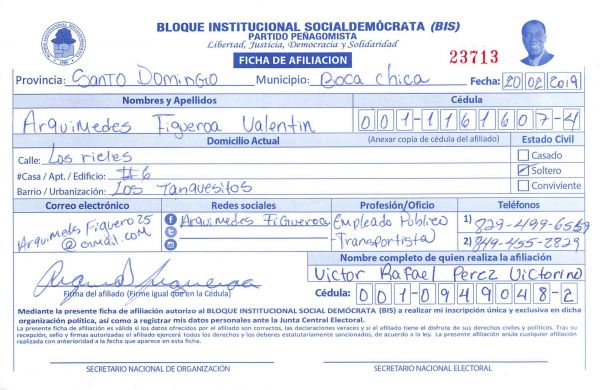 BLOQUE INSTITUCIONAL SOCIALDEMÓCRATA (BIS)
PARTIDO PEÑAGOMISTA
Libertad, Justicia, Democracia y Solidaridad
FICHA DE AFILIACION
23713
Provincia: Santo Domingo Municipio: Boca chica Fecha: 20 02 2019
Nombres y Apellidos Cédula
Arquimedes Figueroa Valentin 001-1161607-4
Domicilio Actual (Anexar copia de cédula del afiliado) Estado Civil
Calle: Los rieles Casado
#Casa / Apt. / Edificio: #6 Soltero
Barrio / Urbanización: Los Tanquesitos Conviviente
Correo electrónico Redes sociales Profesión/Oficio Teléfonos
Arquimedes Figuero25 Arquimedes Figueroa Empleado Público 1) 829-499-6559
-Transportista 2) 849-455-2829
Nombre completo de quien realiza la afiliación
Victor Rafael Perez Victorino
Firma del afiliado (Firme igual que en la Cédula) Cédula: 001-0949048-2
Mediante la presente ficha de afiliación autorizo al BLOQUE INSTITUCIONAL SOCIAL DEMÓCRATA (BIS) a realizar mi inscripción única y exclusiva en dicha
organización política, así como a registrar mis datos personales ante la Junta Central Electoral.
La presente ficha de afiliación es válida si los datos ofrecidos por el afiliado son correctos, las declaraciones veraces y si el afiliado tiene el disfrute de sus derechos civiles y políticos. Tras su
recepción, sello y firmas autorizadas el afiliado ejercerá todos los derechos y los deberes estatutariamente sancionados, de acuerdo a la ley. La presente afiliación anula cualquier afiliación
realizada con anterioridad a la fecha que aparece en esta ficha.
SECRETARIO NACIONAL DE ORGANIZACIÓN SECRETARIO NACIONAL ELECTORAL